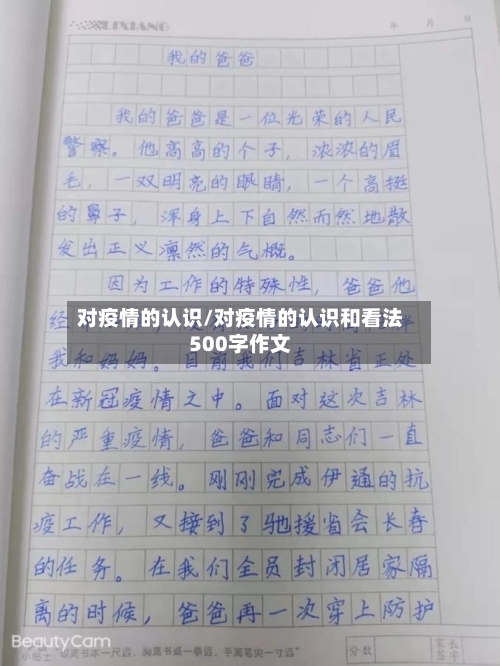 LIXIANG
年 月 日
我的爸爸
我的爸爸是一位光荣的人民
警察。他高高的个子，浓浓的眉
毛，一双明亮的眼睛，一个高挺
的鼻子，浑身上下自然而然地散
发出正义凛然的气概。
因为工作的特殊性，爸爸他
经
对疫情的认识/对疫情的认识和看法
500字作文
伴
我和妈妈。目前我们吉林省正处
在新冠疫情之中。面对这次吉林
的严重疫情，爸爸和同志们一直
奋战在一线。刚刚完成伊通的抗
疫工作，又接到了驰援省会长春
的任务。在我们全员封闭居家隔
离的时候，爸爸再一次穿上防护
BeautyCam
小贴士 眼离书本一尺远，胸离书桌一拳远，手离笔尖一寸远
分数
家长
签字